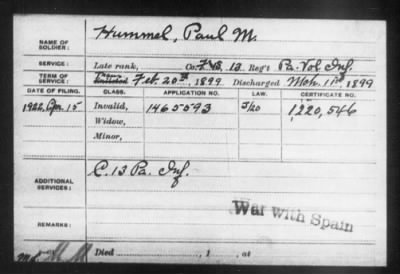 NAME OF SOLDIER: Hummel, Paul M.
SERVICE: Late rank, Co. F & C. 13 Reg't Pa. Vol Inf
TERM OF SERVICE: Enlisted Feb. 20th, 1899 Discharged Mch. 11th, 1899
DATE OF FILING. CLASS. APPLICATION NO. LAW. CERTIFICATE NO.
1922, Apr. 15 Invalid, 1465593 5/20 1220,546
Widow,
Minor,
ADDITIONAL SERVICES: C. 13 Pa. Inf
War with Spain
REMARKS:
Died , 1 , at